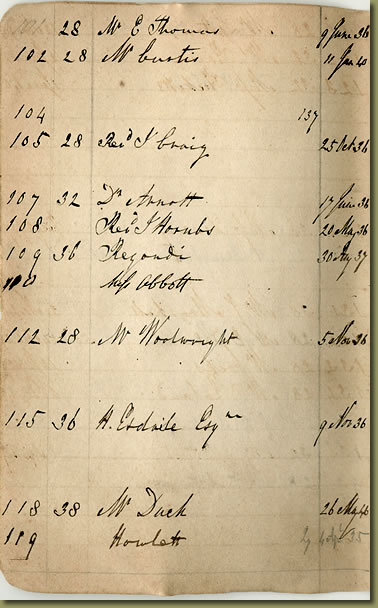 28 Mr E Thomas 9 June 36
102 28 Mr Curtis 11 Jan 40
104 137
105 28 Revd J Craig 25 Oct 36
107 32 Dr Arnott 17 June 36
108 Revd J Hornbs 20 May 36
109 36 Regondi 30 Aug 37
110 Miss Abbott
112 28 Mr Woolwright 5 Nov 36
115 36 H. Esdaile Esqre 9 Nov 36
118 38 Mr Duck 26 May
119 Howlett 35